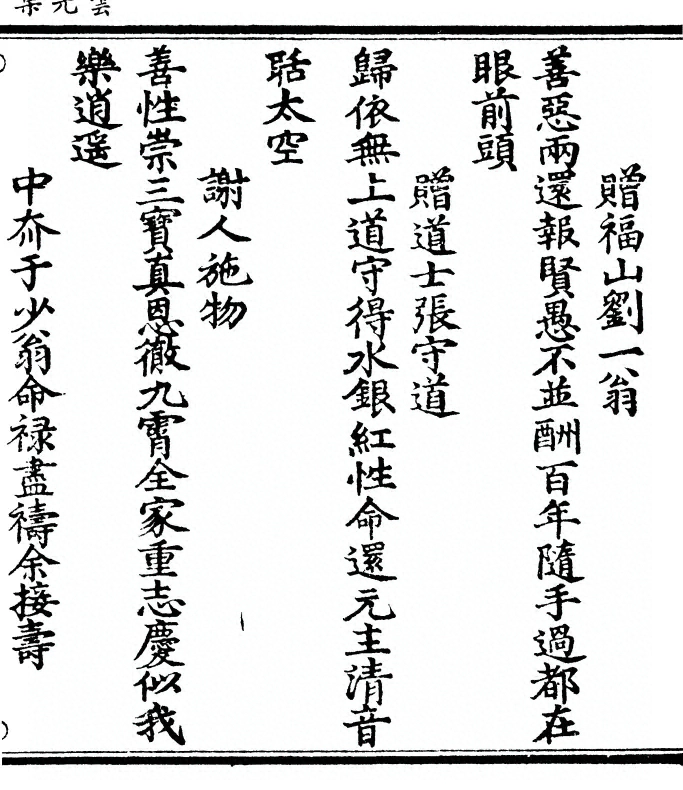 雲光集
贈福山劉一翁
善惡兩還報賢愚不並酬百年隨手過都在
眼前頭
贈道士張守道
歸依無上道守得水銀紅性命還元主清音
聒太空
謝人施物
善性崇三寶真恩徹九霄全家重志慶似我
樂逍遥
中夼于少翁命禄盡禱余接壽